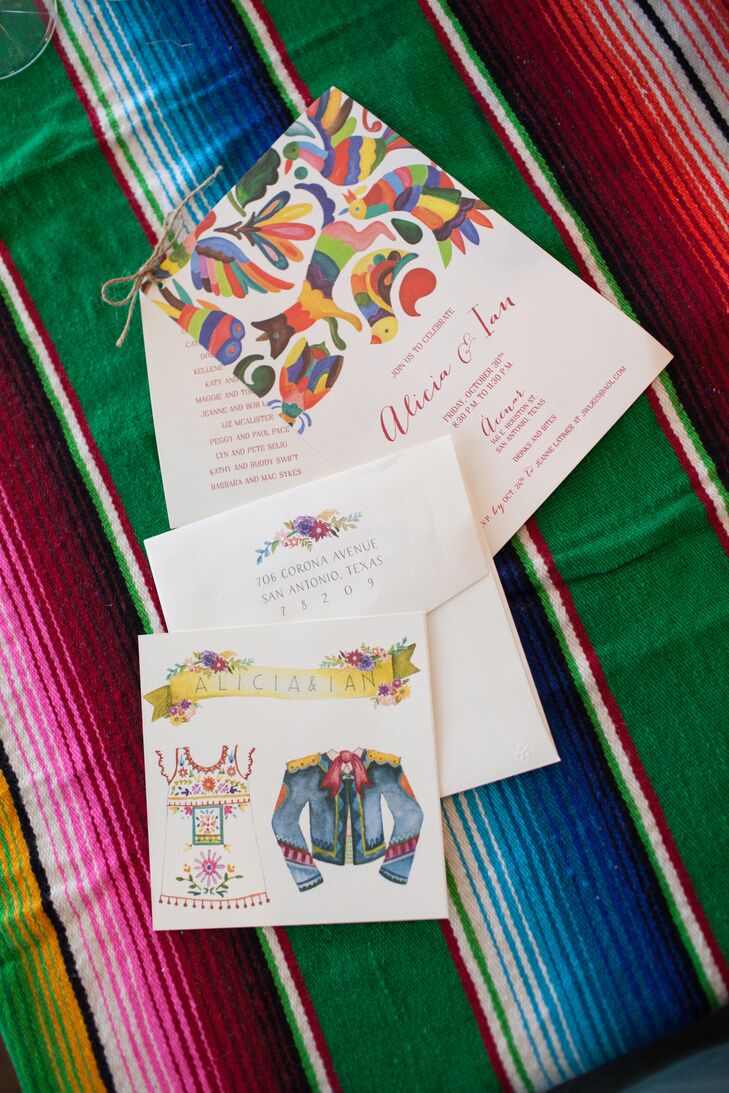 KELLENE
KATY AND
MAGGIE AND TO
JEANNE AND BOB
LIZ MCALISTER
PEGGY AND PAUL PACE
LYN AND PETE SELIG
KATHY AND BUDDY SWIFT
BARBARA AND MAC SYKES
JOIN US TO CELEBRATE
Alicia & Ian
FRIDAY, OCTOBER 30TH
8:30 P.M. TO 11:30 P.M.
Acenar
146 E. HOUSTON ST.
SAN ANTONIO, TEXAS
DRINKS AND BITES
V.P. by OCT. 24TH to JEANNE LATIMER AT JWLREIS@AOL.COM
706 CORONA AVENUE
SAN ANTONIO, TEXAS
7 8 2 0 9
ALICIA & IAN